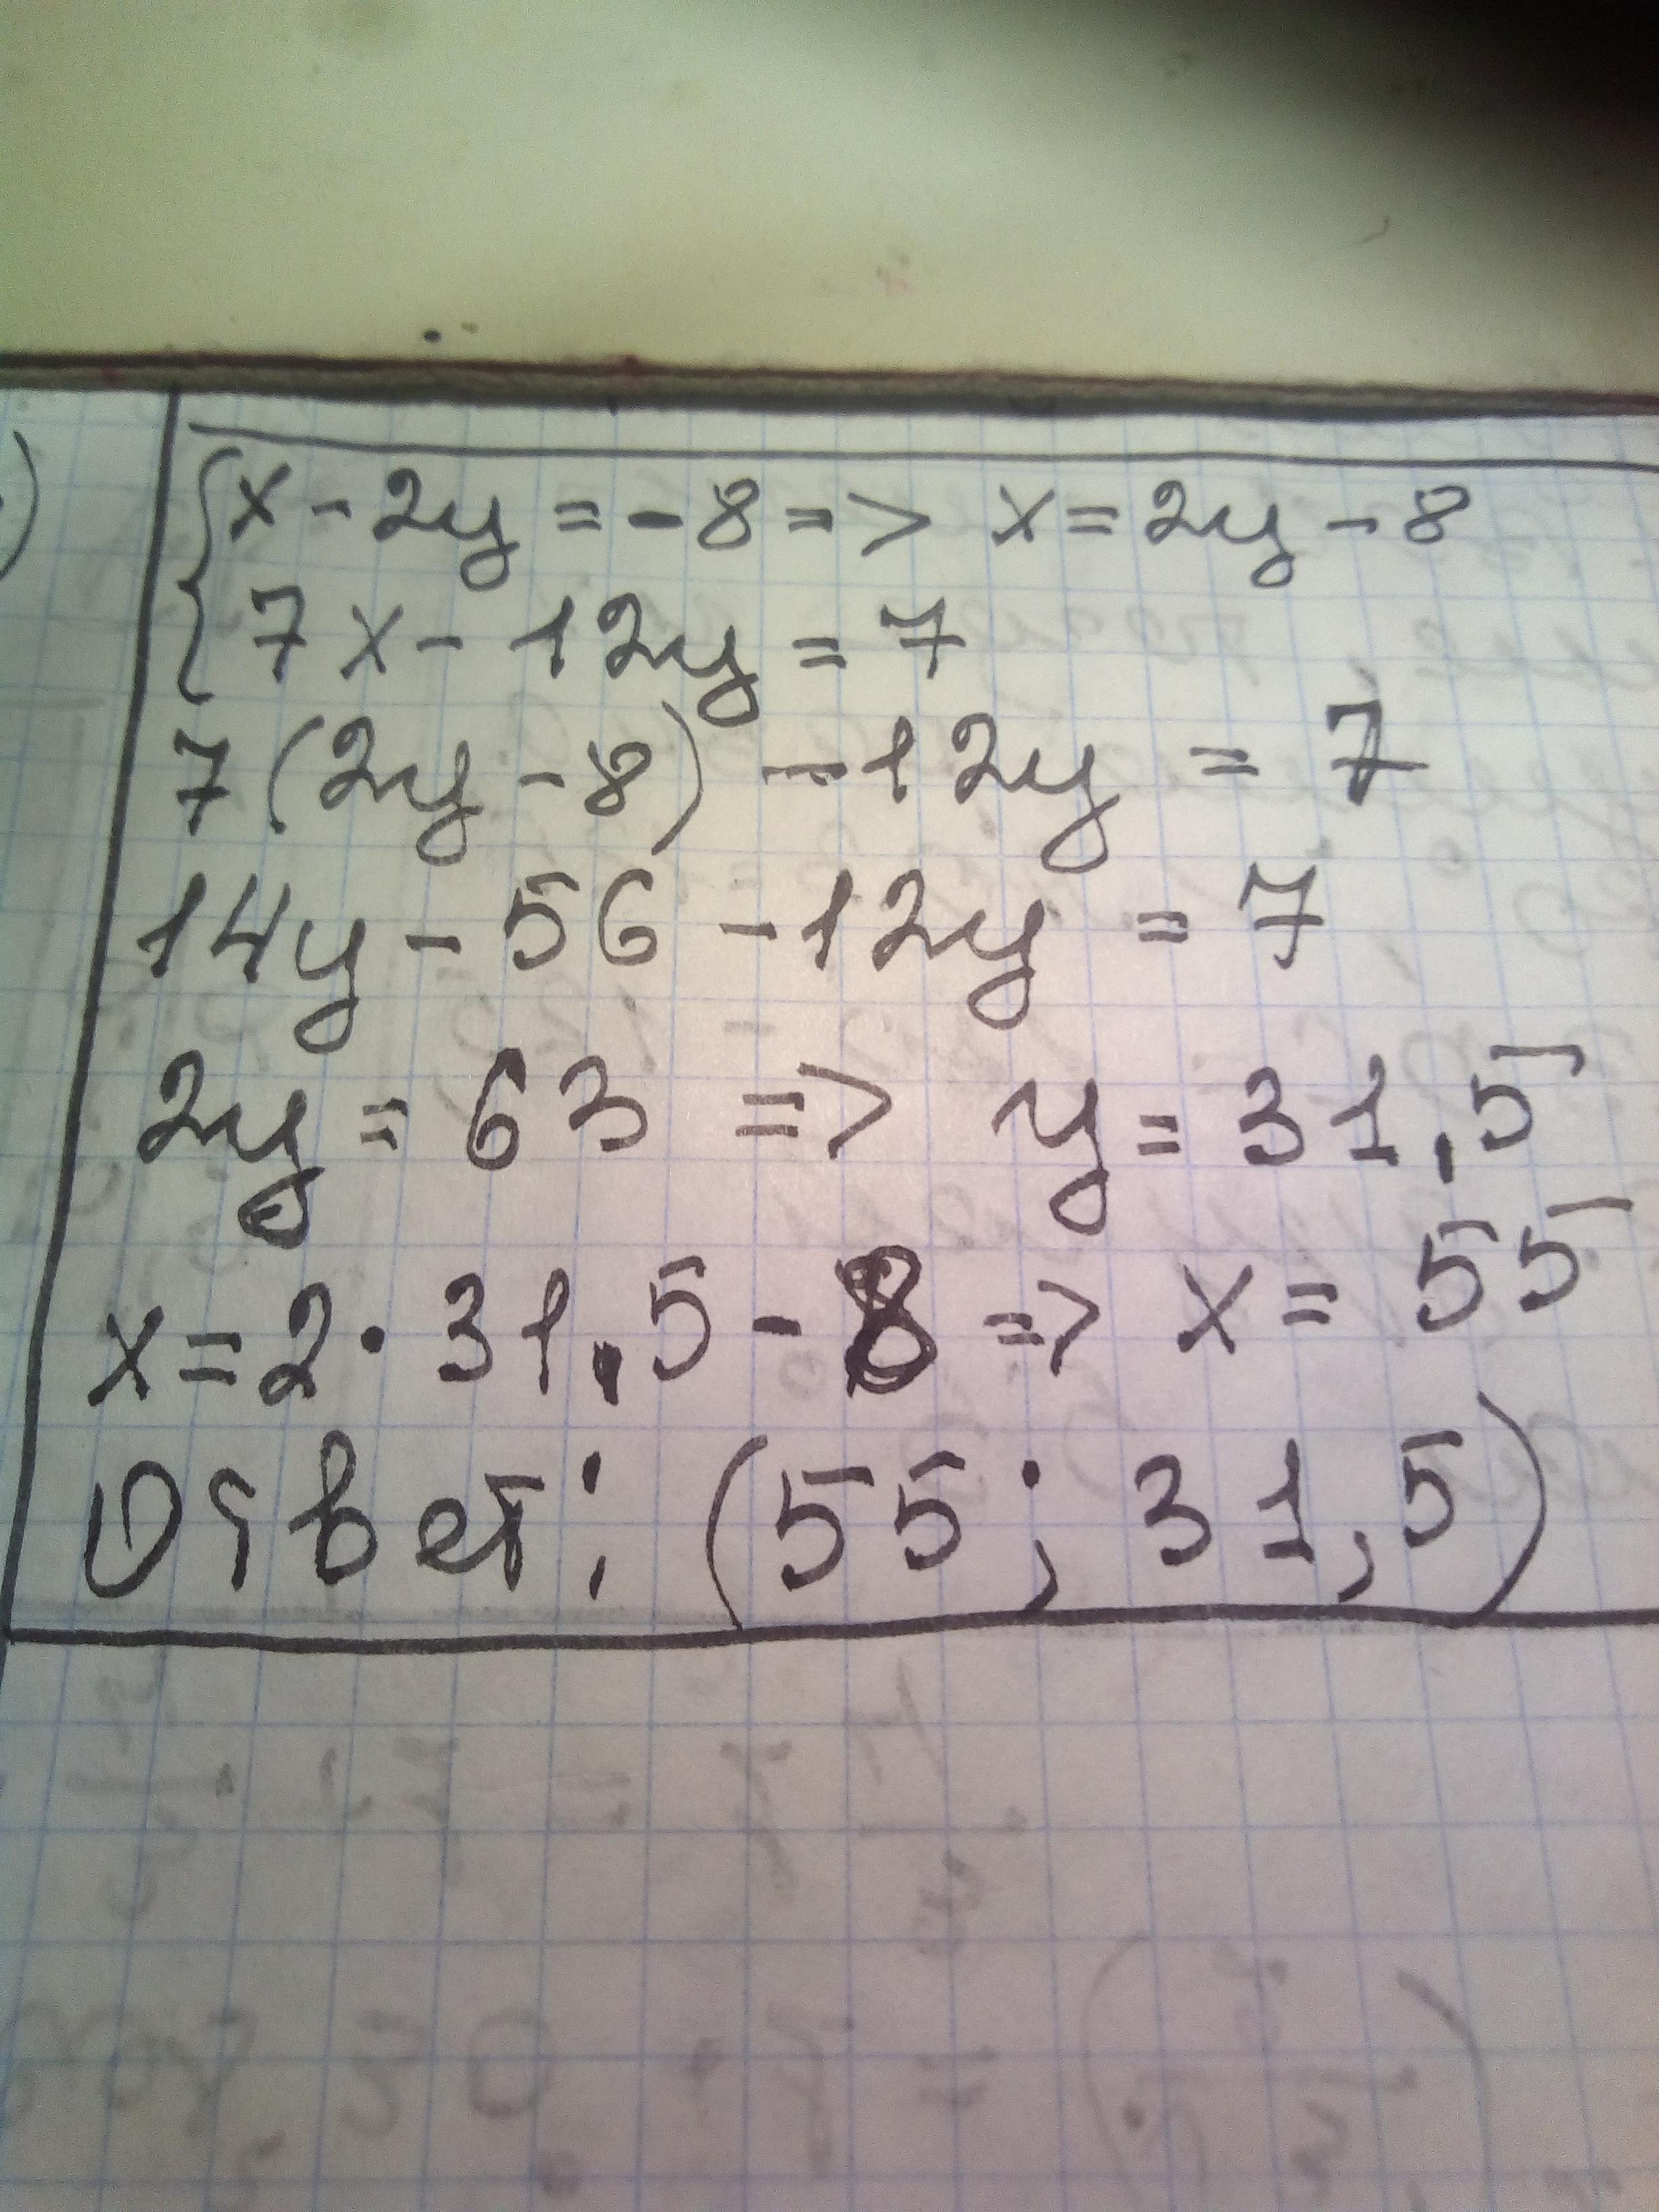 {x - 2y = -8 => x = 2y - 8
7x - 12y = 7
7(2y - 8) - 12y = 7
14y - 56 - 12y = 7
2y = 63 => y = 31,5
x = 2 · 31,5 - 8 => x = 55
Ответ: (55; 31,5)